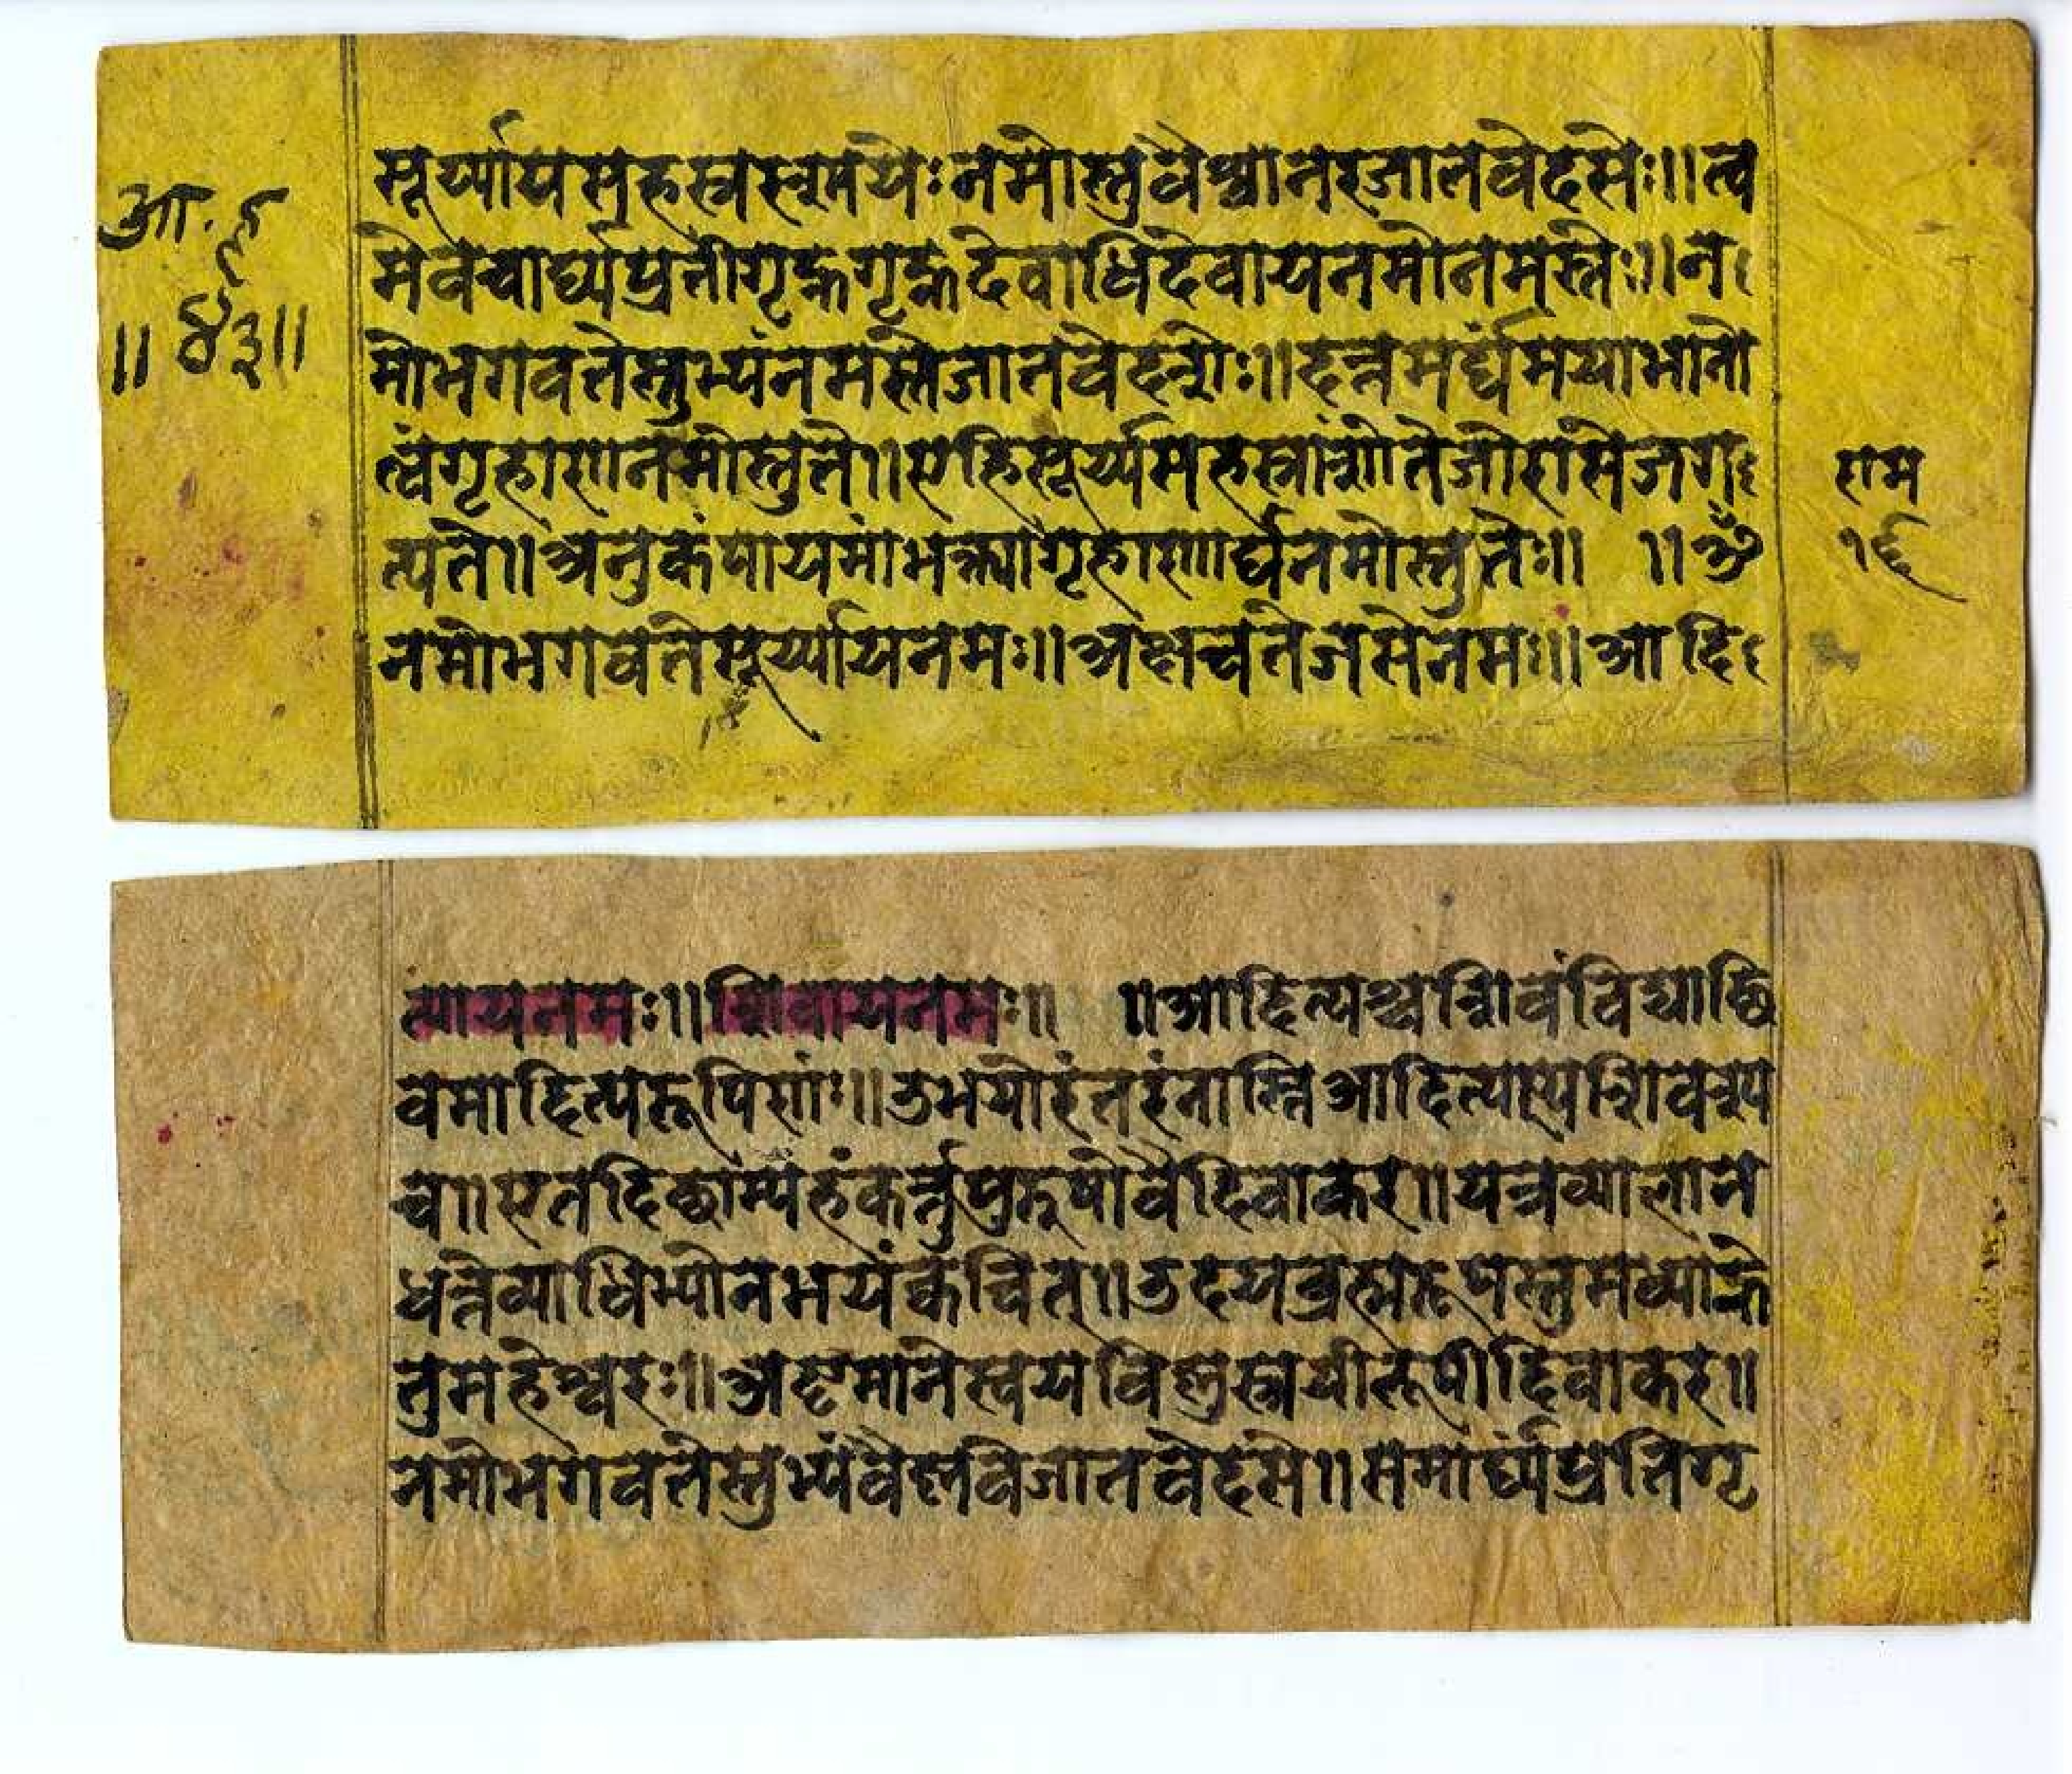 सूर्य्यायसहस्ररूपयेःनमोस्तुवैश्वानरजातवेदसेः॥त्व
आ.हृ
मेवचार्घ्यप्रतीगृह्नगृह्नदेवाधिदेवायनमोनमस्तेः॥न
॥४३॥
मोभगवतेस्तुभ्यंनमस्तेजातवेदशेः॥दत्तमर्घ्यंमयाभानो
त्वंगृहाणानमोस्तुते॥एहिसूर्य्यसहस्रांशोतेजोरासेजग
राम
त्पते॥अनुकंपायमांभक्त्यागृहाणार्घनमोस्तुतेः॥ ॥ॐ
१६
नमोभगवतेसूर्य्यायनमः॥अक्षचतेजसेनमः॥आदि
त्यायनमः॥शिवायनमः॥ ॥आदित्यश्चशिवंविद्याछि
वमादित्यरूपिणांः॥उभयोरंतरंनास्निआदित्यास्यशिवरूप
च॥एतदिछाम्यहंकर्त्तुपुरुषोवैदिवाकर॥यत्रव्यालान
धत्तेव्याधिभ्योनभयंकंचित्॥उदयब्रह्मरूपस्तुमध्याह्ने
तुमहेश्वरः॥अष्टमानेस्वयविष्णुस्त्रयीरूपीदिवाकर॥
नमोभगवतेस्तुभ्यंवैष्णवेजातवेदसे॥ममार्घ्यंप्रतिगृ